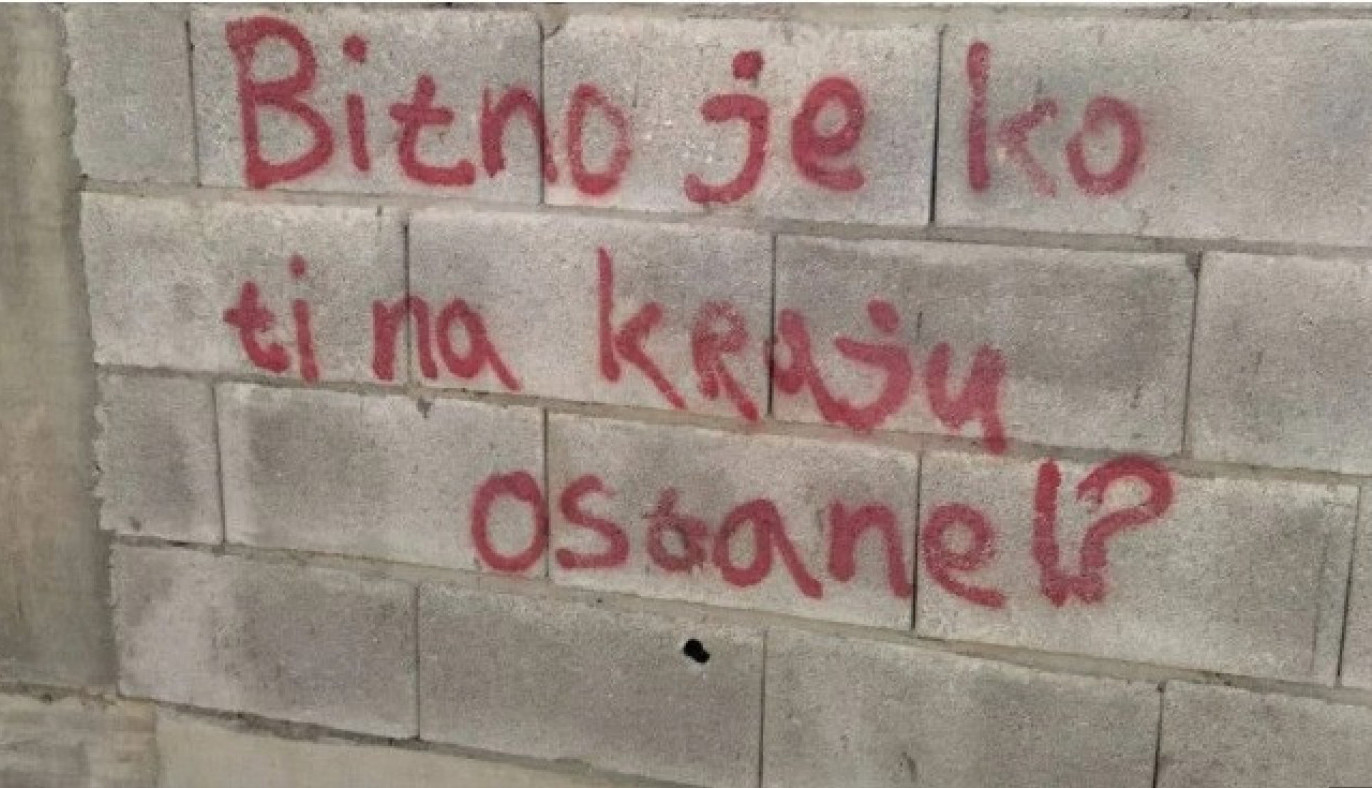 Bitno je ko
ti na kraju
ostane!?